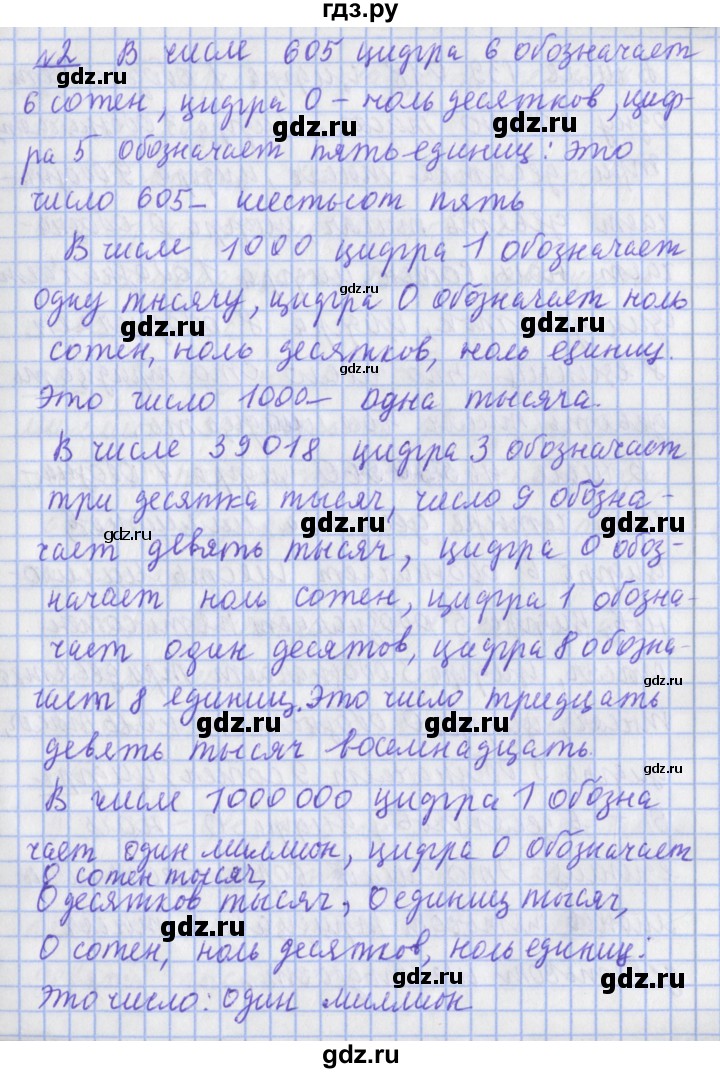 гдз.ру
№2 В числе 605 цифра 6 обозначает
6 сотен, цифра 0 – ноль десятков, циф-
gdz.ru gdz.ru gdz.ru
ра 5 обозначает пять единиц: это
число 605 – шестьсот пять
В числе 1000 цифра 1 обозначает
gdz.ru
одну тысячу, цифра 0 обозначает ноль
gdz.ru gdz.ru
сотен, ноль десятков, ноль единиц.
gdz.ru
Это число 1000 – одна тысяча.
В числе 39018 цифра 3 обозначает
три десятка тысяч, число 9 обозна-
gdz.ru gdz.ru gdz.ru
чает девять тысяч, цифра 0 обоз-
начает ноль сотен, цифра 1 обозна-
gdz.ru
чает один десятов, цифра 8 обозна-
gdz.ru
чает 8 единиц. Это число тридцать
gdz.ru gdz.ru
девять тысяч восемнадцать.
gdz.ru
В числе 1000 000 цифра 1 обозна
чает один миллион, цифра 0 обозначает
0 сотен тысяч,
0 десятков тысяч, 0 единиц тысяч,
gdz.ru
0 сотен, ноль десятков, ноль единиц:
gdz.ru gdz.ru
это число: один миллион
gdz.ru